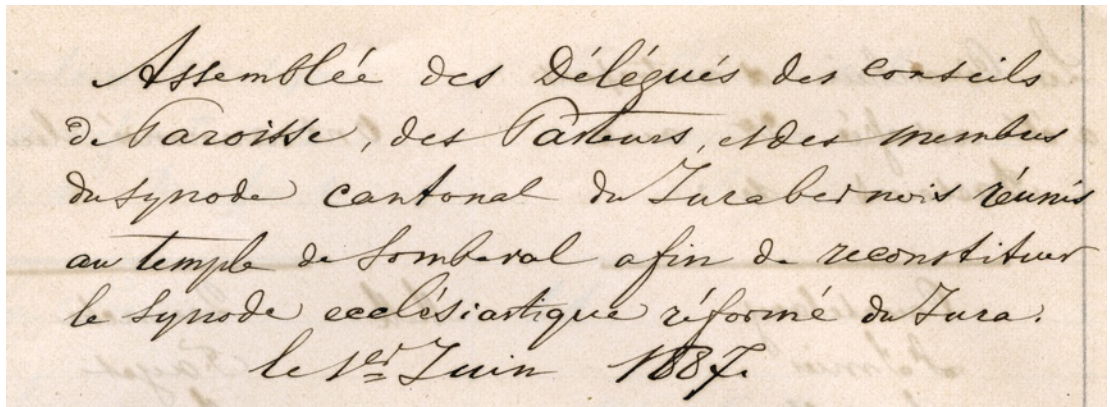 Assemblée des Délégués des conseils
de Paroisse, des Pasteurs, et des membres
du synode cantonal du Jura bernois réunis
au temple de Sombeval afin de reconstituer
le Synode ecclésiastique réformé du Jura.
le 1er Juin 1887.